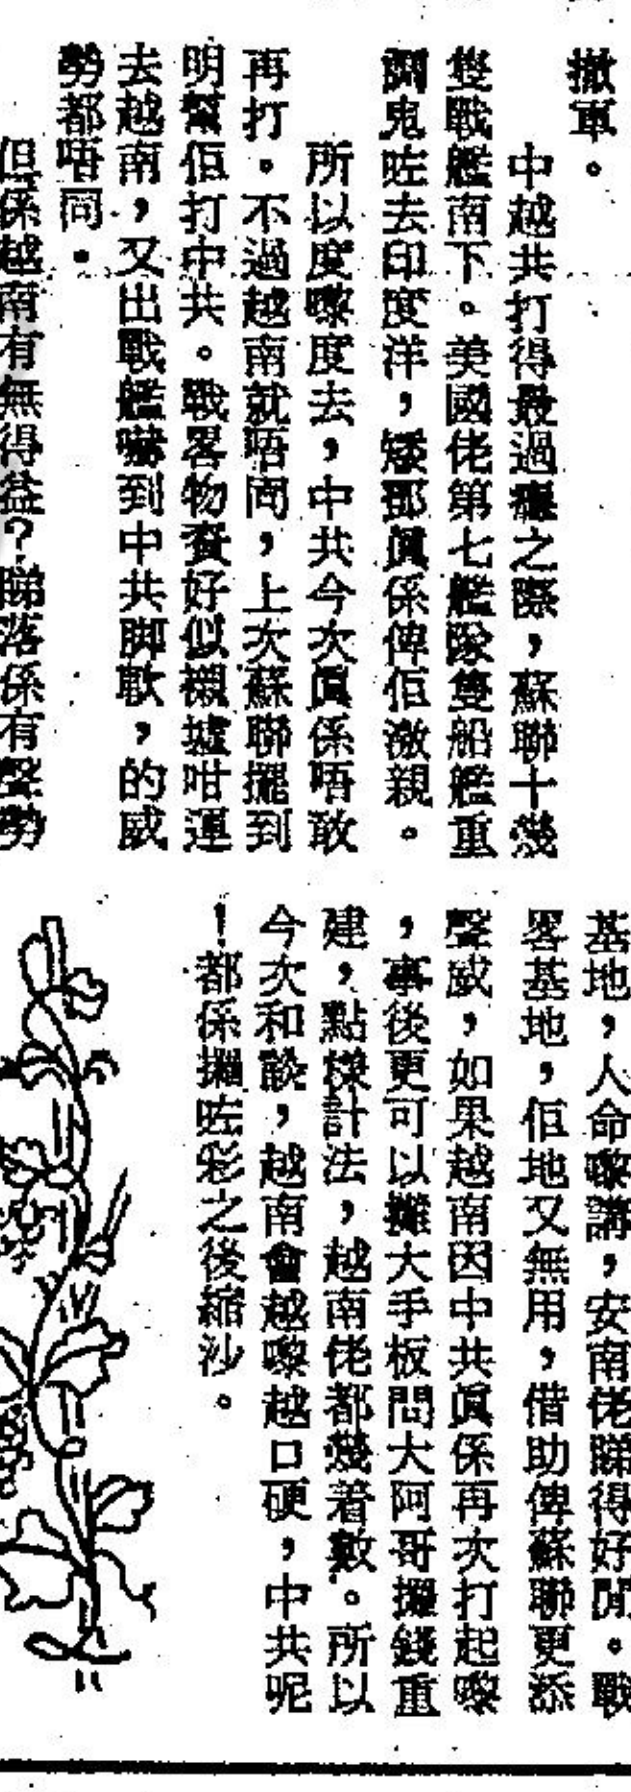 撤軍。
中越共打得最過癮之際，蘇聯十幾
隻戰艦南下。美國佬第七艦隊隻船艦重
調鬼咗去印度洋，矮鄧眞係俾佢激親。
所以度嚟度去，中共今次眞係唔敢
再打。不過越南就唔同，上次蘇聯擺到
明幫佢打中共。戰畧物資好似襯墟咁運
去越南，又出戰艦嚇到中共脚軟，的威
勢都唔同。
但係越南有無得益？睇落係有聲勢
基地，人命嚟講，安南佬睇得好閒。戰
畧基地，佢地又無用，借助俾蘇聯更添
聲威，如果越南因中共眞係再次打起嚟
，事後更可以攤大手板問大阿哥攞錢重
建，點樣計法，越南佬都幾着數。所以
今次和談，越南會越嚟越口硬，中共呢
！都係攞咗彩之後縮沙。